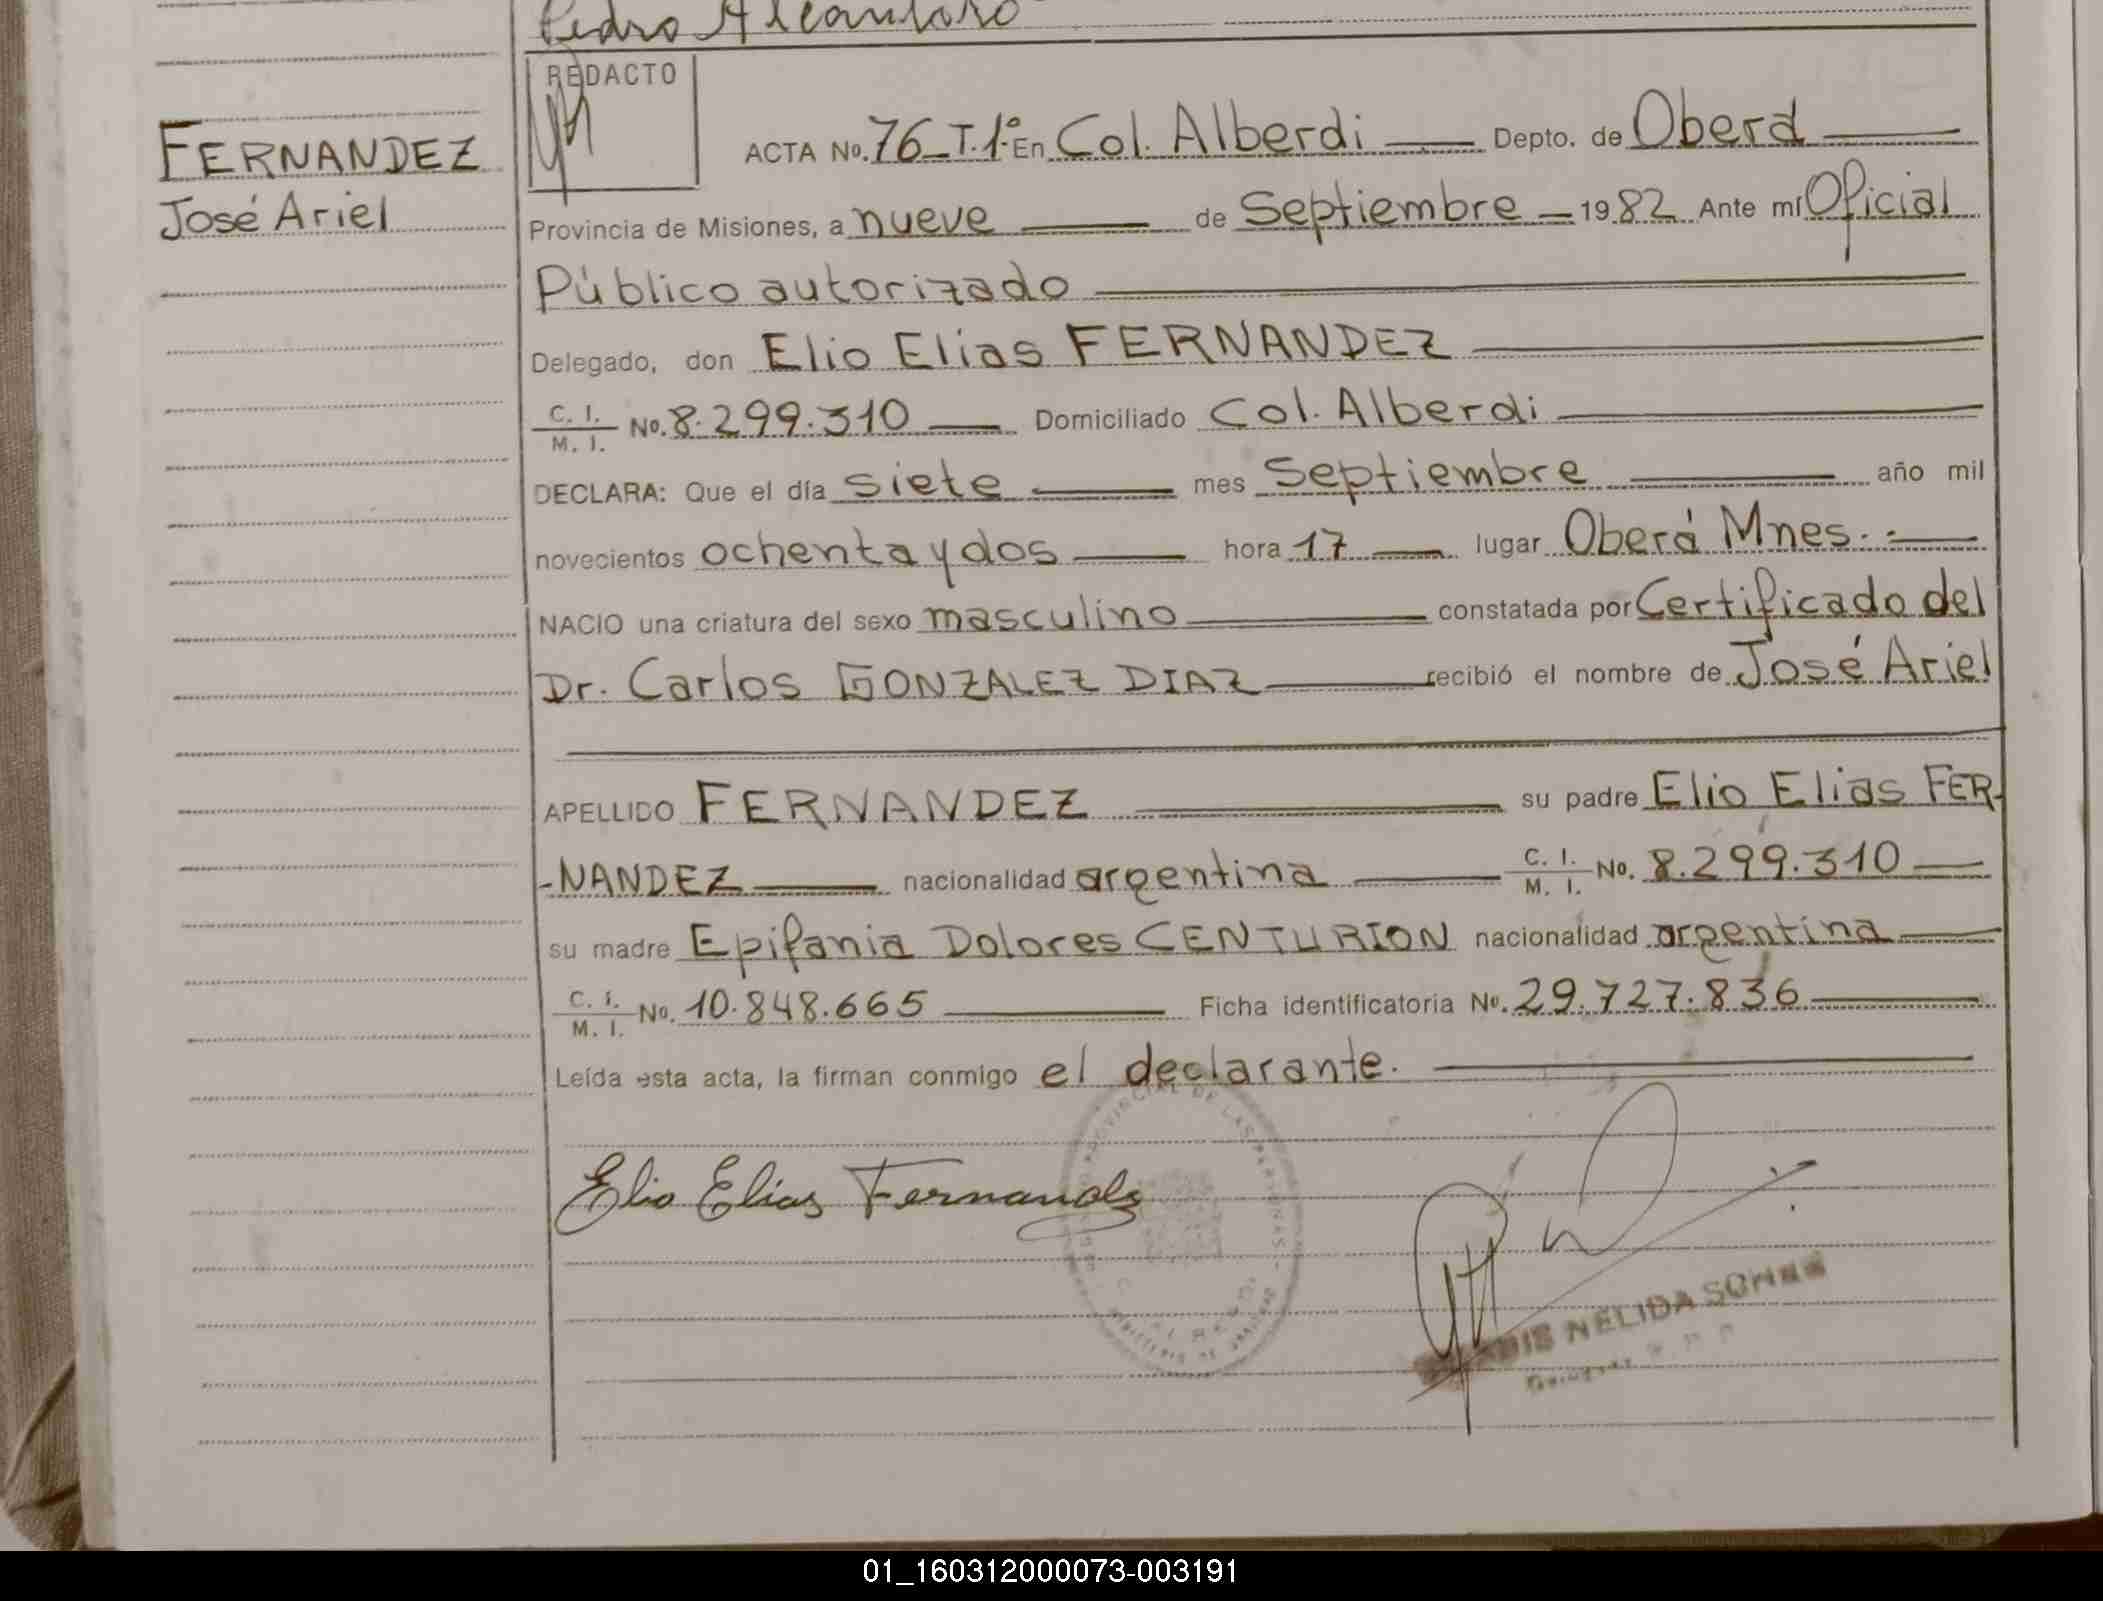 Pedro Alcantaro
REDACTO
FERNANDEZ
José Ariel
ACTA No. 76_T.1º En Col. Alberdi Depto. de Oberá
Provincia de Misiones, a nueve de Septiembre 1982 Ante mí Oficial
Público autorizado
Delegado, don Elio Elias FERNANDEZ
C. I. / M. I. No. 8.299.310 Domiciliado Col. Alberdi
DECLARA: Que el día siete mes Septiembre año mil
novecientos ochenta y dos hora 17 lugar Oberá Mnes.
NACIO una criatura del sexo masculino constatada por Certificado del
Dr. Carlos GONZALEZ DIAZ recibió el nombre de José Ariel
APELLIDO FERNANDEZ su padre Elio Elias FER-
-NANDEZ nacionalidad argentina C. I. / M. I. No. 8.299.310
su madre Epifania Dolores CENTURION nacionalidad argentina
C. I. / M. I. No. 10.848.665 Ficha identificatoria No. 29.727.836
Leída esta acta, la firman conmigo el declarante.
Elio Elias Fernandez
PROVINCIAL DE LAS PERSONAS
NELIDA
01_160312000073-003191